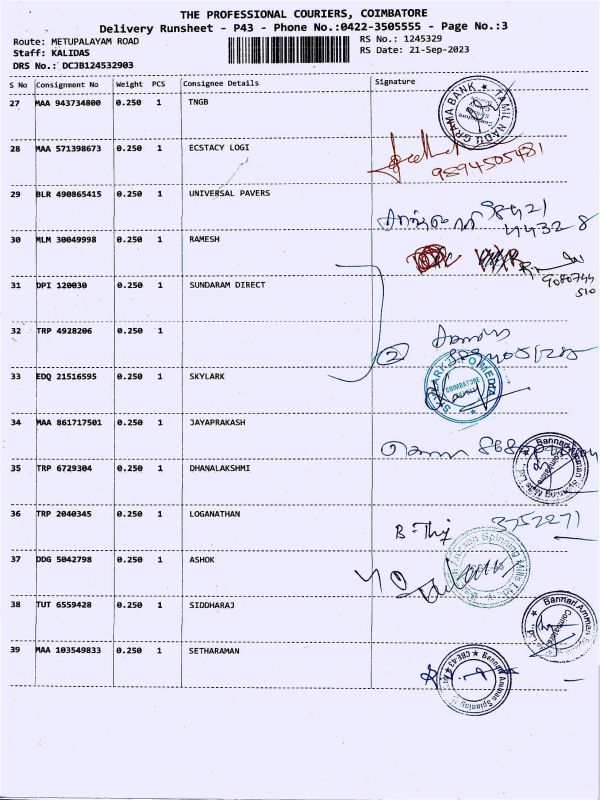 THE PROFESSIONAL COURIERS, COIMBATORE
Delivery Runsheet - P43 - Phone No.:0422-3505555 - Page No.:3
Route: METUPALAYAM ROAD
RS No.: 1245329
Staff: KALIDAS
RS Date: 21-Sep-2023
DRS No.: DCJB124532903
S No Consignment No Weight PCS Consignee Details Signature
27 MAA 943734800 0.250 1 TNGB
TAMIL NADU GRAMA BANK
28 MAA 571398673 0.250 1 ECSTACY LOGI
9894505481
29 BLR 490865415 0.250 1 UNIVERSAL PAVERS
98421
44328
30 MLM 30049998 0.250 1 RAMESH
9080744
510
31 DPI 120030 0.250 1 SUNDARAM DIRECT
32 TRP 4928206 0.250 1
2
33 EDQ 21516595 0.250 1 SKYLARK
COIMBATORE
34 MAA 861717501 0.250 1 JAYAPRAKASH
35 TRP 6729304 0.250 1 DHANALAKSHMI
Bannari Amman Spinning Mills Ltd
Coimbatore
36 TRP 2040345 0.250 1 LOGANATHAN
3752271
37 DDG 5042798 0.250 1 ASHOK
Amman Spinning Mills Ltd
38 TUT 6559428 0.250 1 SIDDHARAJ
Bannari Amman
39 MAA 103549833 0.250 1 SETHARAMAN
Bannari Amman Spinning
CBE-43